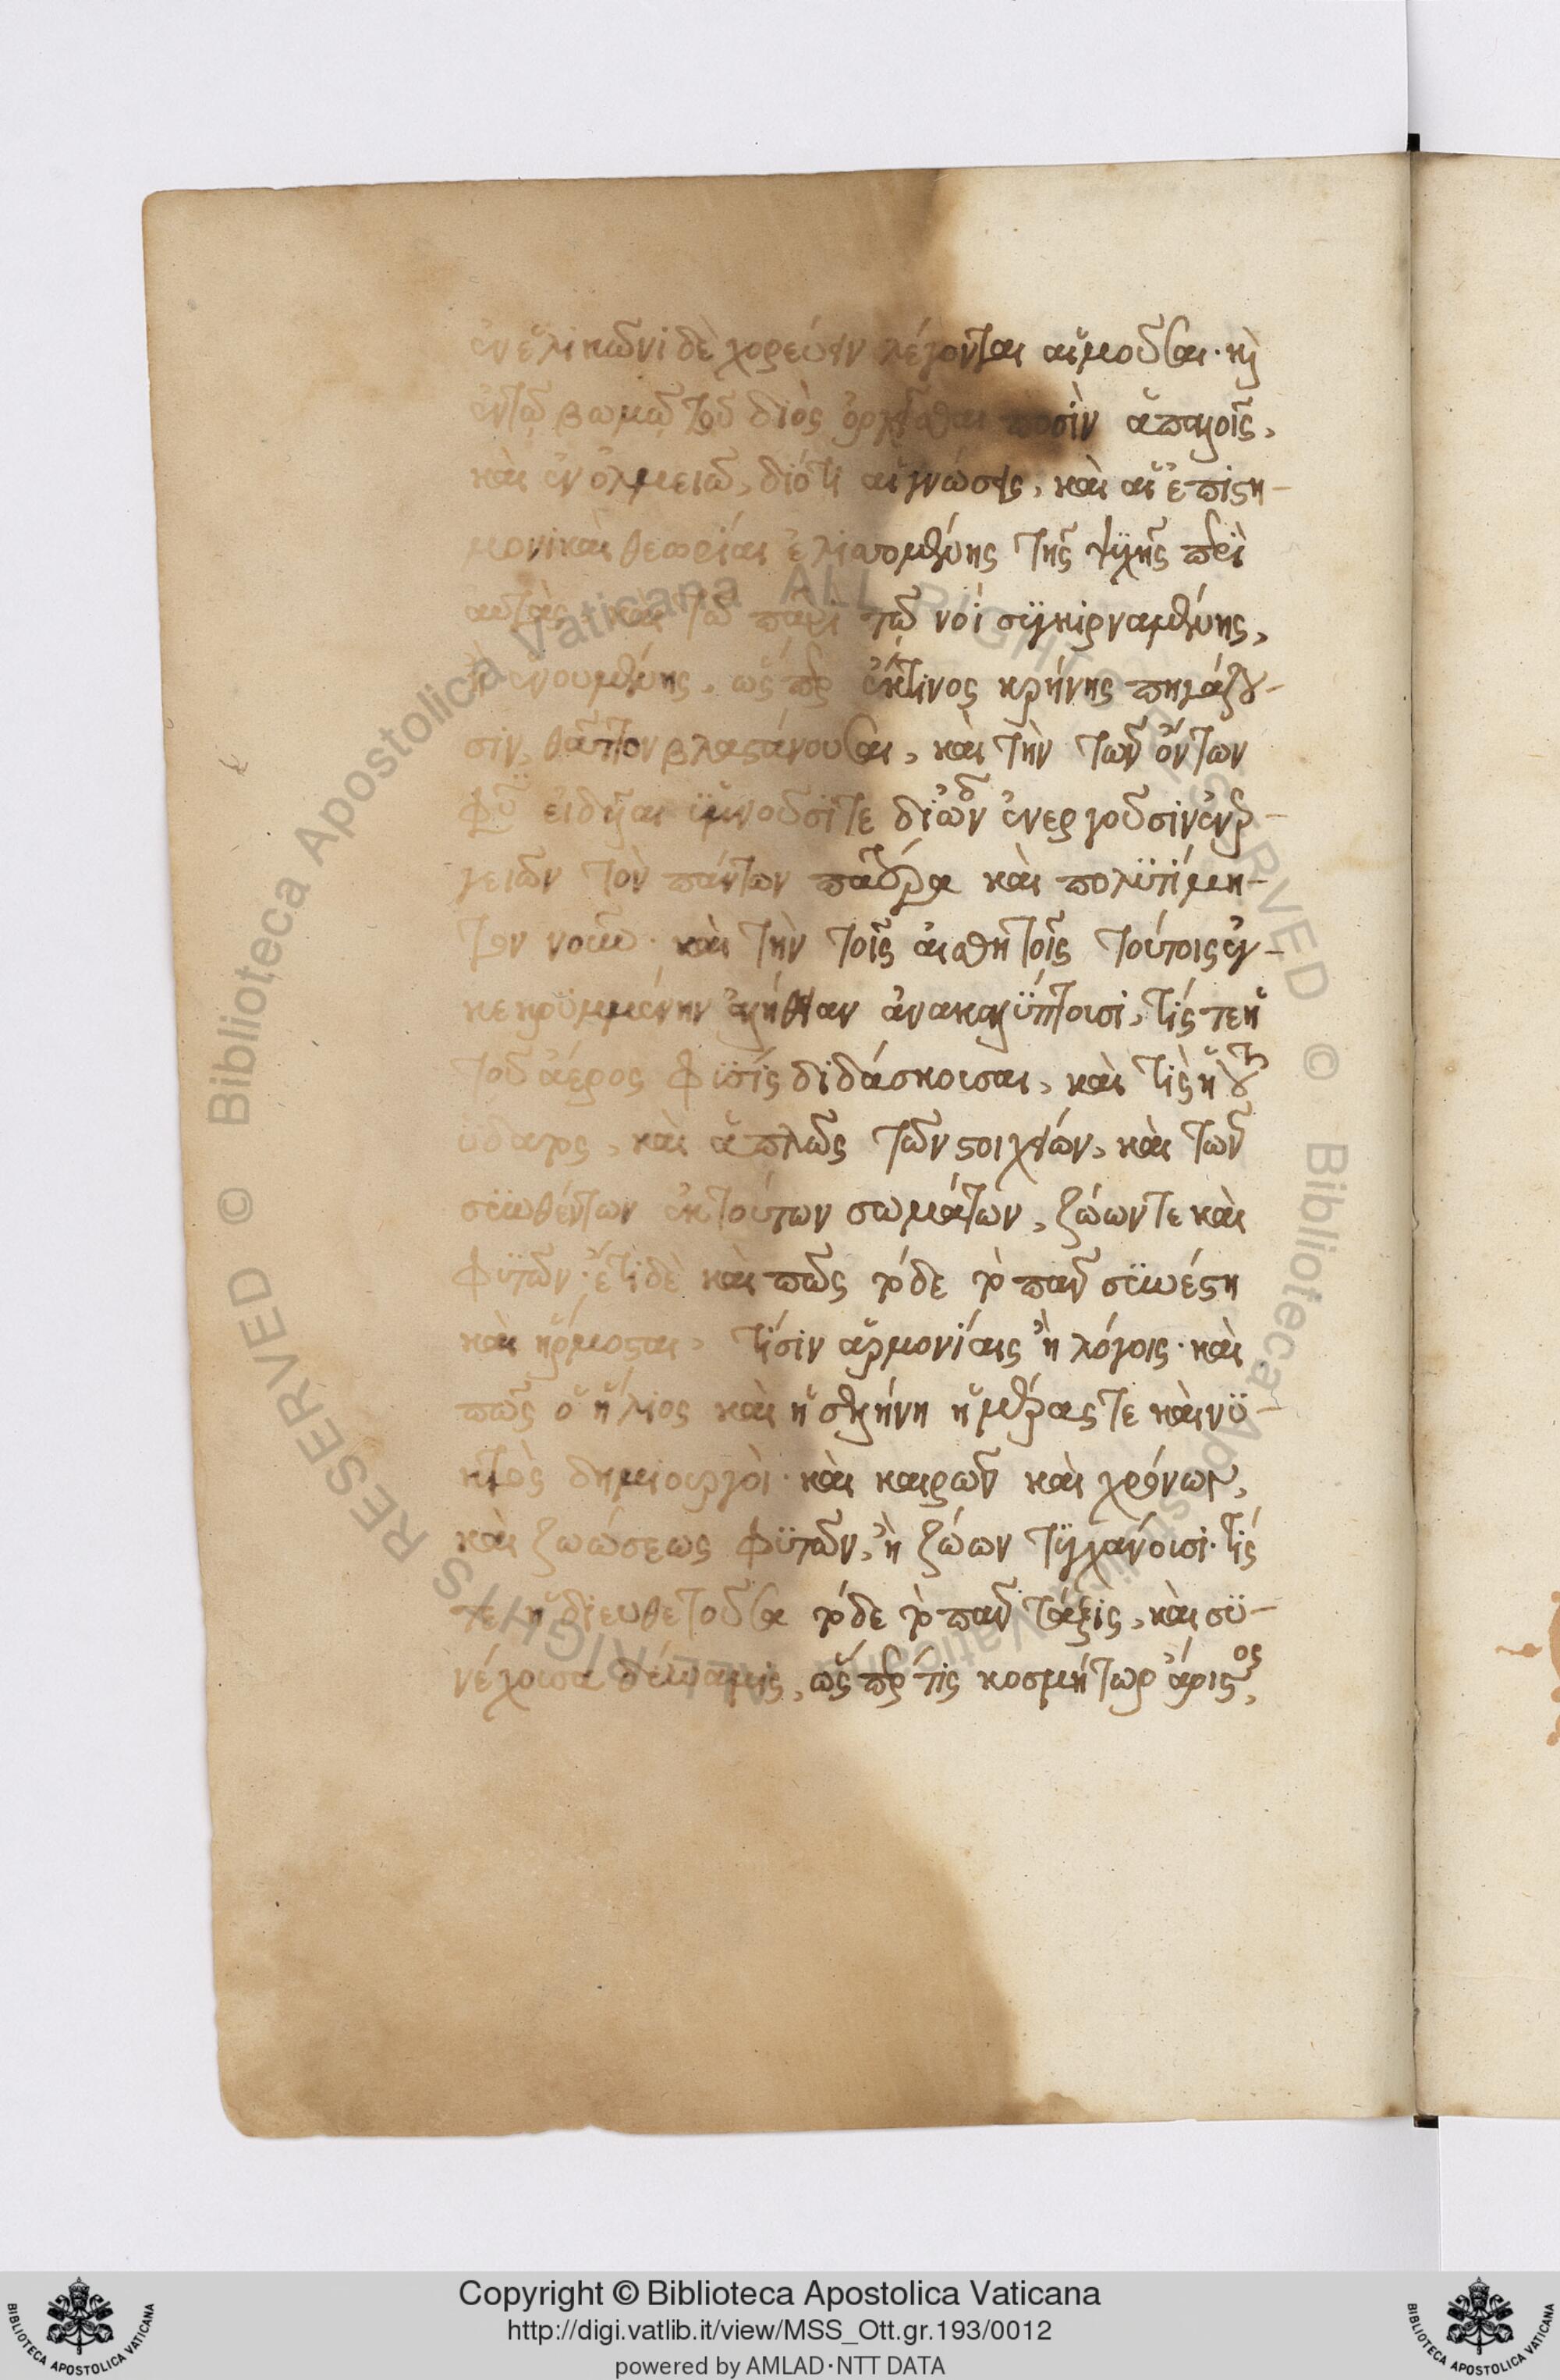 ἐν ἑλικῶνι δὲ χορεύειν λέγονται αἱ μοῦσαι· καὶ
ἐν τῷ βωμῷ τοῦ διὸς ὀρχεῖσθαι ποσὶν ἁπαλοῖς,
καὶ ἐν ὀλμειῶ, διότι αἱ γνώσεις, καὶ αἱ ἐπιστη-
μονικαὶ θεωρίαι ἑλιττομένης τῆς ψυχῆς περὶ
αὑτὰς, καὶ τῷ πατρὶ τῷ νοῒ συγκιρναμένης,
καὶ ἑνουμένης, ὥσπερ ἔκ τινος κρήνης πηγάζου-
σιν, θᾶττον βλαστάνουσαι, καὶ τὴν τῶν ὄντων
φύσιν εἰδυῖαι ὑμνοῦσί τε δι' ὧν δ' ἐνεργοῦσιν ἐνερ-
γειῶν τὸν πάντων πατέρα καὶ πολυτίμη-
τον νοῦν· καὶ τὴν τοῖς αἰσθητοῖς τούτοις ἐγ-
κεκρυμμένην ἀλήθειαν ἀνακαλύπτουσι, τίς τε ἡ
τοῦ ἀέρος φύσις διδάσκουσαι, καὶ τίς ἡ τοῦ
ὕδατος, καὶ ἁπλῶς τῶν στοιχείων, καὶ τῶν
συνθέντων ἐκ τούτων σωμάτων, ζώων τε καὶ
φυτῶν· ἔτι δὲ καὶ πῶς τόδε τὸ πᾶν συνέστη
καὶ ἥρμοσται, τίσιν ἁρμονίαις ἢ λόγοις· καὶ
πῶς ὁ ἥλιος καὶ ἡ σελήνη ἡμέρας τε καὶ νυ-
κτὸς δημιουργοὶ· καὶ καιρῶν καὶ χρόνων,
καὶ ζωώσεως φυτῶν, ἢ ζώων τυγχάνουσι· τίς
τε ἡ διευθετοῦσα τόδε τὸ πᾶν τάξις, καὶ συ-
νέχουσα δύναμις, ὥσπερ τίς κοσμήτωρ ἄριστος,
Copyright © Biblioteca Apostolica Vaticana
http://digi.vatlib.it/view/MSS_Ott.gr.193/0012
powered by AMLAD·NTT DATA